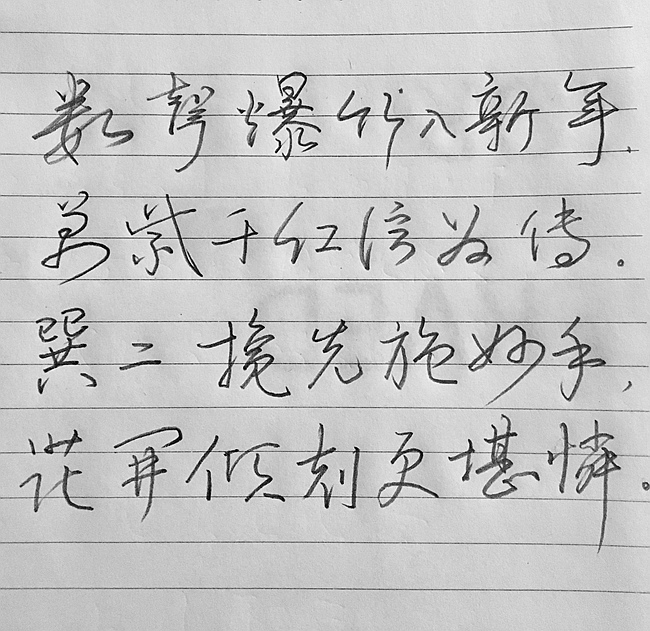 数声爆竹入新年,
万紫千红信为传。
巽二搀先施妙手,
花开倾刻更堪憐。